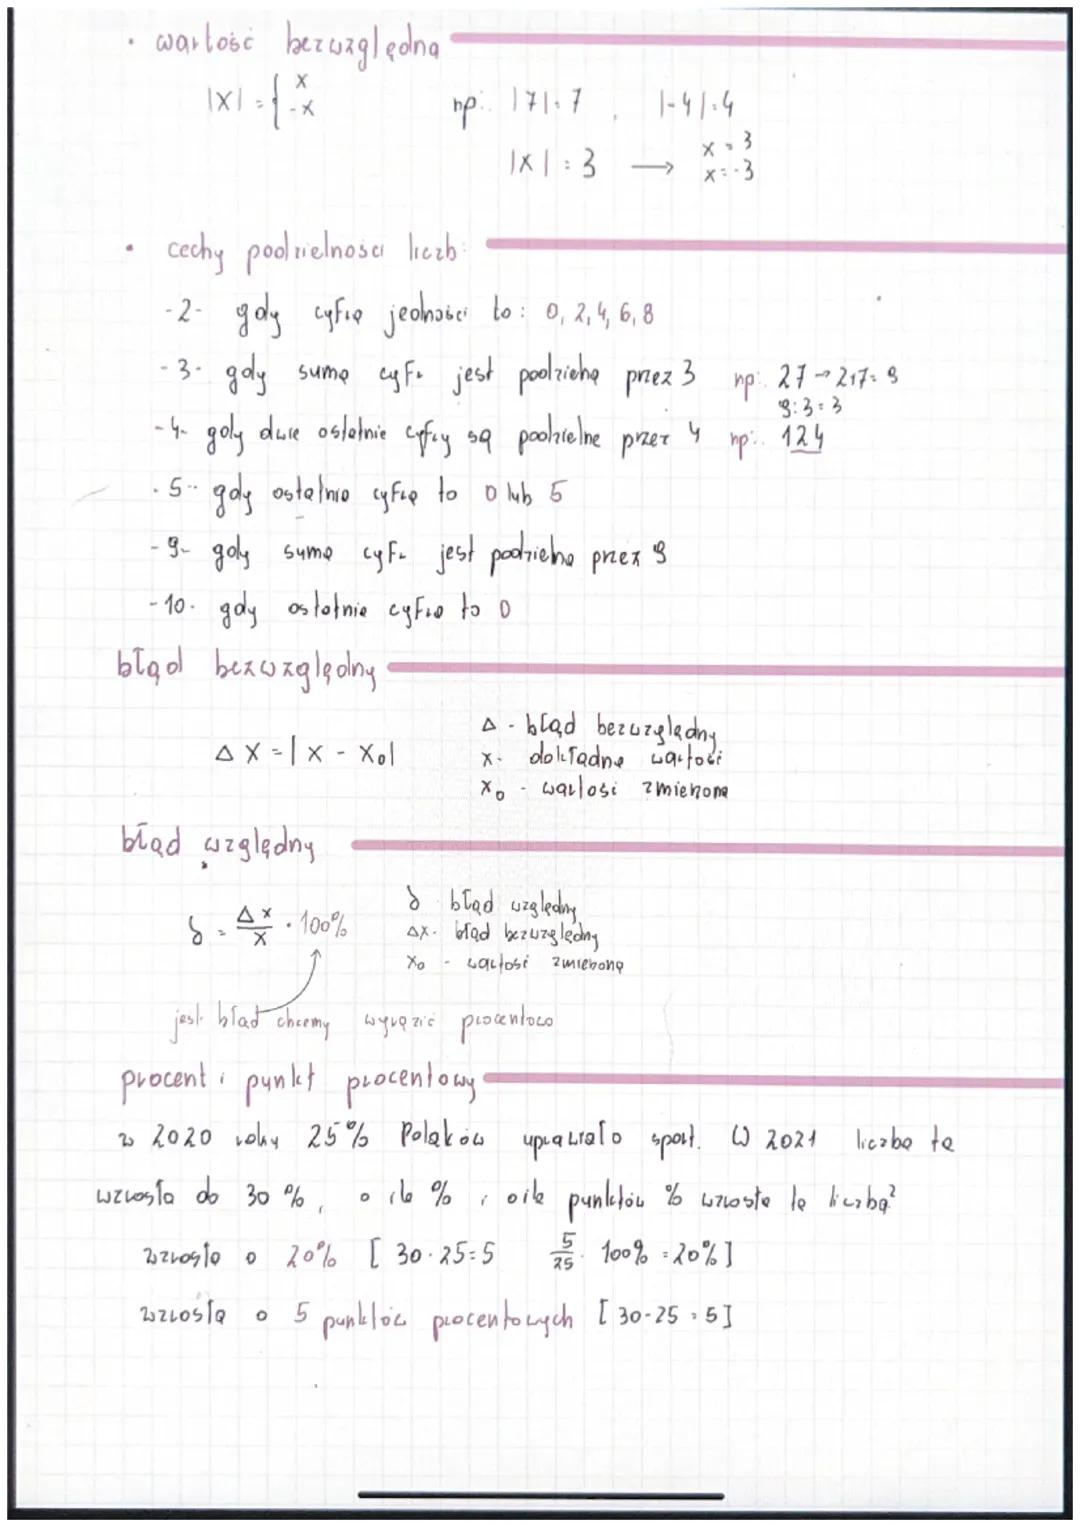 • wartość bezwzględna
|X| = { x
-x
np: |7|=7, |-4|=4
|X| = 3 → x = 3
x = -3
• cechy podzielności liczb:
-2- gdy cyfrą jedności to: 0, 2, 4, 6, 8
-3- gdy suma cyfr jest podzielna przez 3 np: 27 → 2+7=9
9:3=3
-4- gdy dwie ostatnie cyfry są podzielne przez 4 np: 124
-5- gdy ostatnia cyfra to 0 lub 5
-9- gdy suma cyfr jest podzielna przez 9
-10- gdy ostatnia cyfra to 0
błąd bezwzględny
Δ X = | X - X₀|
Δ - błąd bezwzględny
X - dokładna wartość
X₀ - wartość zmierzona
błąd względny
δ = Δx/x · 100%
δ błąd względny
ΔX - błąd bezwzględny
X₀ - wartość zmierzona
jeśli błąd chcemy wyrazić procentowo
procent i punkt procentowy
w 2020 roku 25% Polaków uprawiało sport. W 2021 liczba ta
wzrosła do 30%, o ile % i o ile punktów % wzrosła ta liczba?
wzrosła o 20% [ 30-25=5 5/25 · 100% = 20% ]
wzrosła o 5 punktów procentowych [ 30-25 = 5 ]